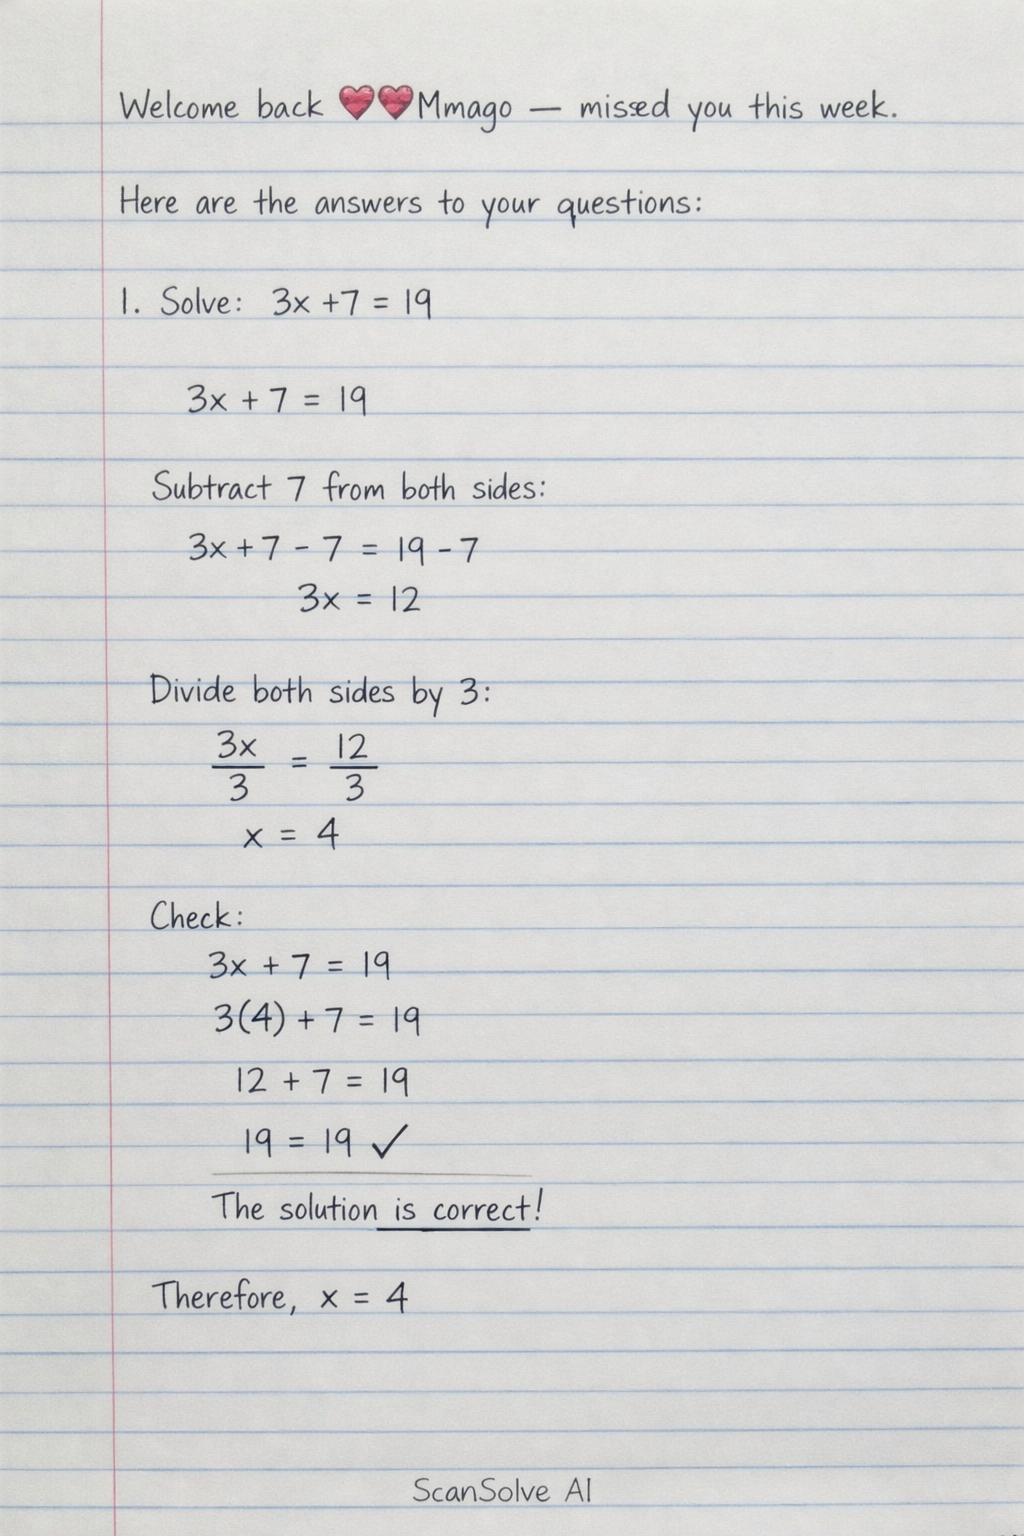 Welcome back ❤️❤️Mmago — missed you this week.
Here are the answers to your questions:
1. Solve: 3x +7 = 19
3x + 7 = 19
Subtract 7 from both sides:
3x + 7 - 7 = 19 - 7
3x = 12
Divide both sides by 3:
3x/3 = 12/3
x = 4
Check:
3x + 7 = 19
3(4) + 7 = 19
12 + 7 = 19
19 = 19 ✓
The solution is correct!
Therefore, x = 4
ScanSolve AI